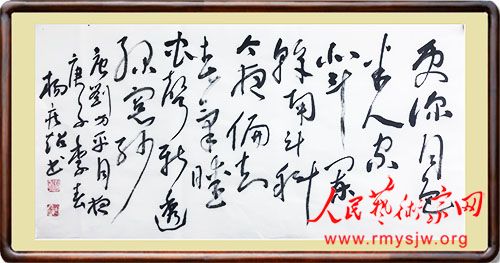 更深月色
半人家
北斗阑
幹南斗斜
今夜偏知
春氣暖
虫聲新透
绿窗纱
唐劉方平月夜
庚子季春
杨 书
人民藝術家网
www.rmysjw.org